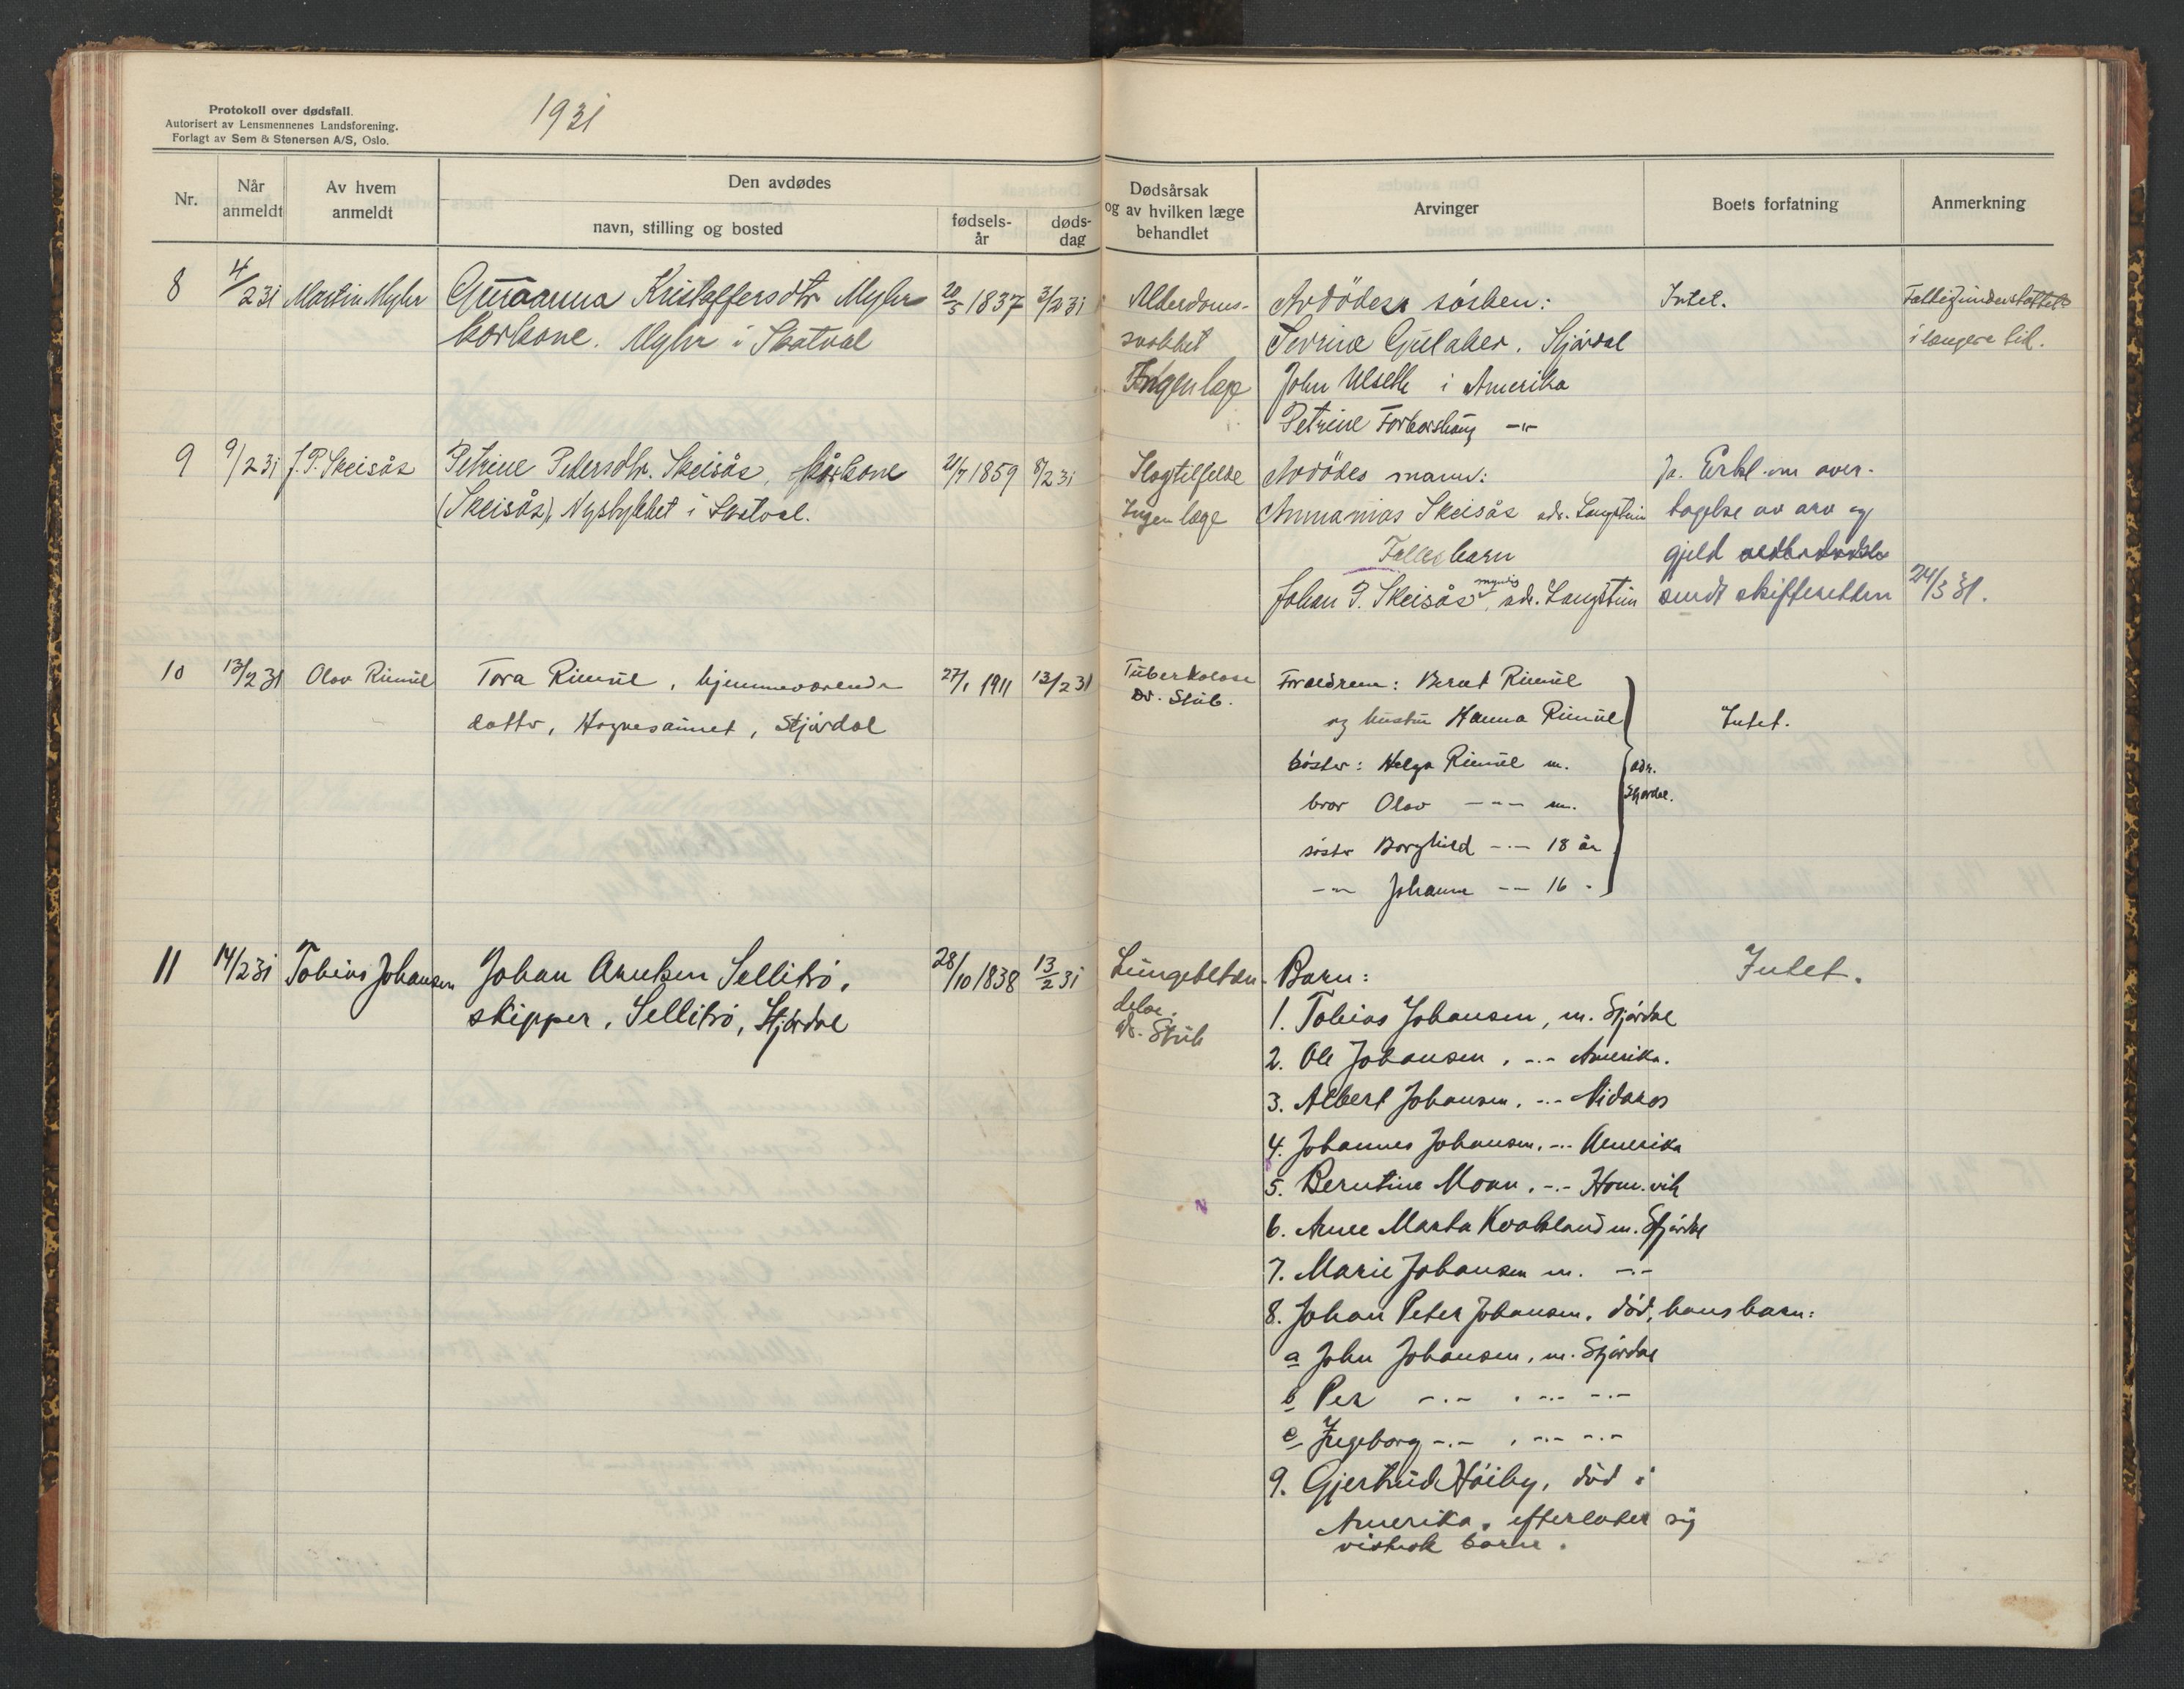 Protokoll over dødsfall.
Autorisert av Lensmennenes Landsforening.
Forlagt av Sem & Stenersen A/S, Oslo.
1931
Nr.
Når anmeldt
Av hvem anmeldt
Den avdødes
navn, stilling og bosted
fødsels-
år
døds-
dag
Dødsårsak
og av hvilken læge
behandlet
Arvinger
Boets forfatning
Anmerkning
8 4/2 31 Martin Myhr Kristoffersdtr Myhr 20/5 1837 3/2 31
Myhr i Skatval
Alderdoms-
svakhet
Ingen læge
Avdödes sösken:
Serine Stjördal
John Ulseth i Amerika
Petrine Forbordshaug -"-
Intet.
Fattigunderstöttels
i længere tid.
9 9/2 31 J. P. Skeisås Petrine Petersdtr. Skeisås, kårkone 21/7 1859 8/2 31
(Skeisås), Nysbykket i Skatval.
Slagtilfelde
Ingen læge
Avdödes mann:
Annanias Skeisås adr. Langstein
Felles barn
Johan P. Skeisås, myndig adr. Langstein
Ja. Erkl. om over-
tagelse av arv og
gjeld
sendt skifteretten 24/3 31.
10 13/2 31 Olav Rimul Tora Rimul, hjemmeværende 27/1 1911 13/2 31
datter, Hognesaunet, Stjördal
Tuberkolose
Dr. Stub.
Foreldrene: Bernt Rimul
og hustru Hanna Rimul
söster: Helga Rimul m.
bror Olav -"- m.
söster Borghild -"- 18 år
-"- Johanna -"- 16 -
adr.
Stjördal.
Intet.
11 14/2 31 Tobias Johansen Johan Arntsen Sellitrö, 28/10 1838 13/2 31
skipper, Sellitrö, Stjördal
Lungebeten-
delse.
dr. Stub
Barn:
1. Tobias Johansen, m. Stjördal
2. Ole Johansen, -"- Amerika.
3. Albert Johansen, -"- Nidaros
4. Johannes Johansen, -"- Amerika
5. Berntine Moan, -"- Hom.vik
6. Anne Marta Kvokland m. Stjördal
7. Marie Johansen m. -"-
8. Johan Peter Johansen, död, hans barn:
a John Johansen, m. Stjördal
b Per -"- , -"- -"-
c Ingeborg -"- , -"- -"-
9. Gjertrud Höiby, död i
Amerika, efterlater sig
vistnok barn.
Intet.